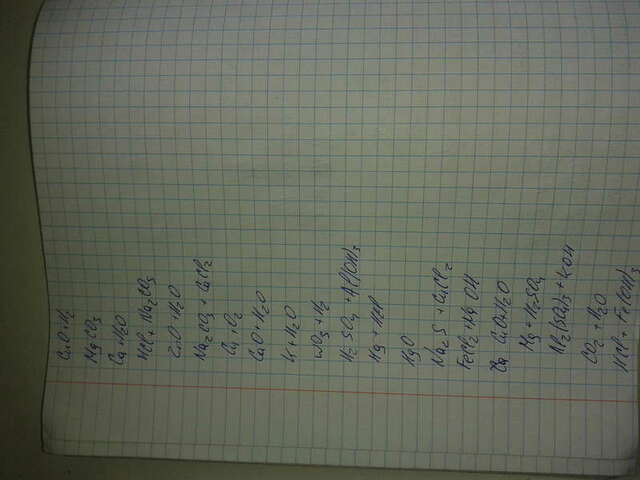 CuO + H₂
MgCO₃
Ca + H₂O
HCl + Na₂CO₃
ZnO + H₂O
Na₂CO₃ + CaCl₂
Ca + O₂
CaO + H₂O
K + H₂O
WO₃ + H₂
H₂SO₄ + Al(OH)₃
Hg + HCl
HgO
Na₂S + CuCl₂
FeCl₂ + OH
CuO + H₂O
Mg + H₂SO₄
Al₂(SO₄)₃ + KOH
CO₂ + H₂O
HCl + Fe(OH)₃